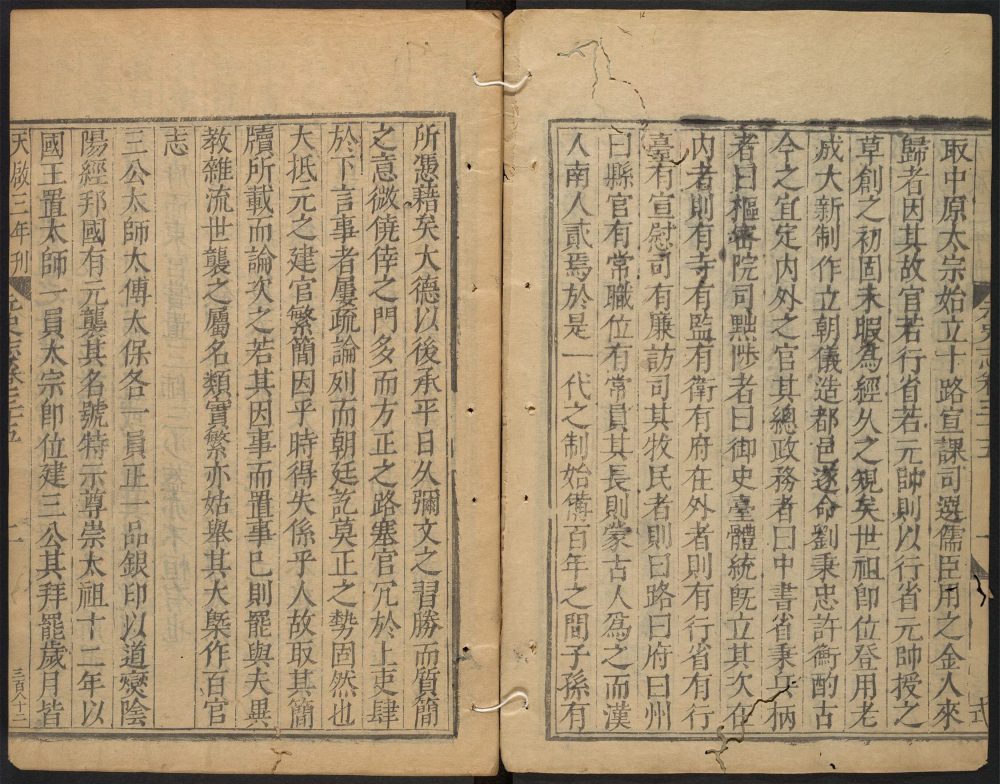 元史志卷三十五
取中原太宗始立十路宣課司選儒臣用之金人來
歸者因其故官若行省若元帥則以行省元帥授之
草創之初固未暇為經久之規矣世祖即位登用老
成大新制作立朝儀造都邑遂命劉秉忠許衡酌古
今之宜定內外之官其總政務者曰中書省秉兵柄
者曰樞密院司黜陟者曰御史臺體統既立其次在
內者則有寺有監有衛有府在外者則有行省有行
臺有宣慰司有廉訪司其牧民者則曰路曰府曰州
曰縣官有常職位有常員其長則蒙古人為之而漢
人南人貳焉於是一代之制始備百年之間子孫有
所憑藉矣大德以後承平日久彌文之習勝而質簡
之意微僥倖之門多而方正之路塞官冗於上吏肆
於下言事者屢疏論列而朝廷訖莫正之勢固然也
大抵元之建官繁簡因乎時得失係乎人故取其簡
牘所載而論次之若其因事而置事已則罷與夫異
教雜流世襲之屬名類實繁亦姑舉其大槩作百官
志
三公太師太傅太保各一員正一品銀印以道燮陰
陽經邦國有元襲其名號特示尊崇太祖十二年以
國王置太師一員太宗即位建三公其拜罷歲月皆
天啟三年刊
元史志卷三十五
一
三百八十二